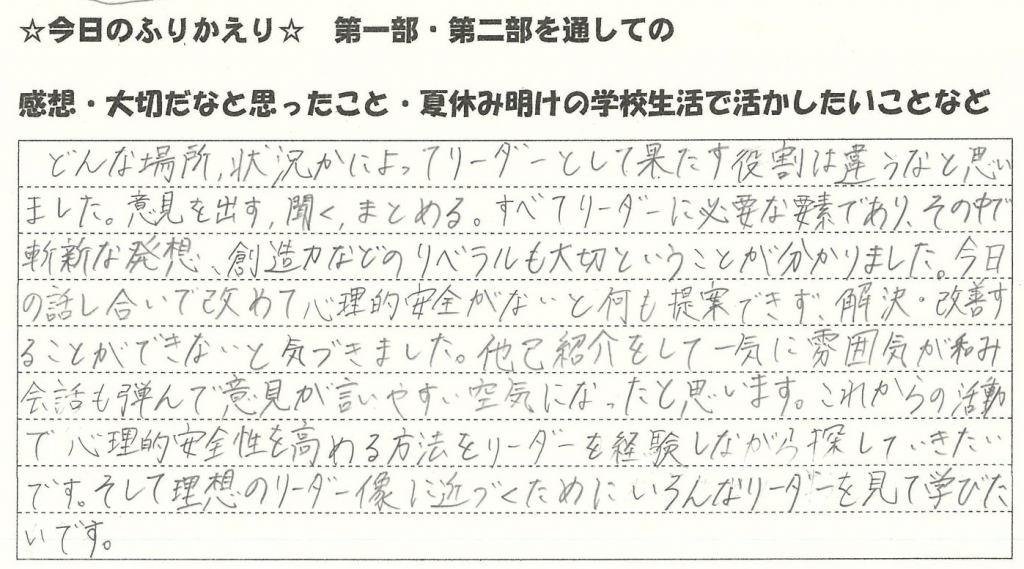 ☆今日のふりかえり☆　第一部・第二部を通しての
感想・大切だなと思ったこと・夏休み明けの学校生活で活かしたいことなど
どんな場所,状況かによってリーダーとして果たす役割は違うなと思い
ました。意見を出す,聞く,まとめる。すべてリーダーに必要な要素であり、その中で
斬新な発想、創造力などのリベラルも大切ということが分かりました。今日
の話し合いで改めて心理的安全がないと何も提案できず、解決・改善す
ることができないと気づきました。他己紹介をして一気に雰囲気が和み
会話も弾んで意見が言いやすい空気になったと思います。これからの活動
で心理的安全性を高める方法をリーダーを経験しながら探していきたい
です。そして理想のリーダー像に近づくためにいろんなリーダーを見て学びた
いです。